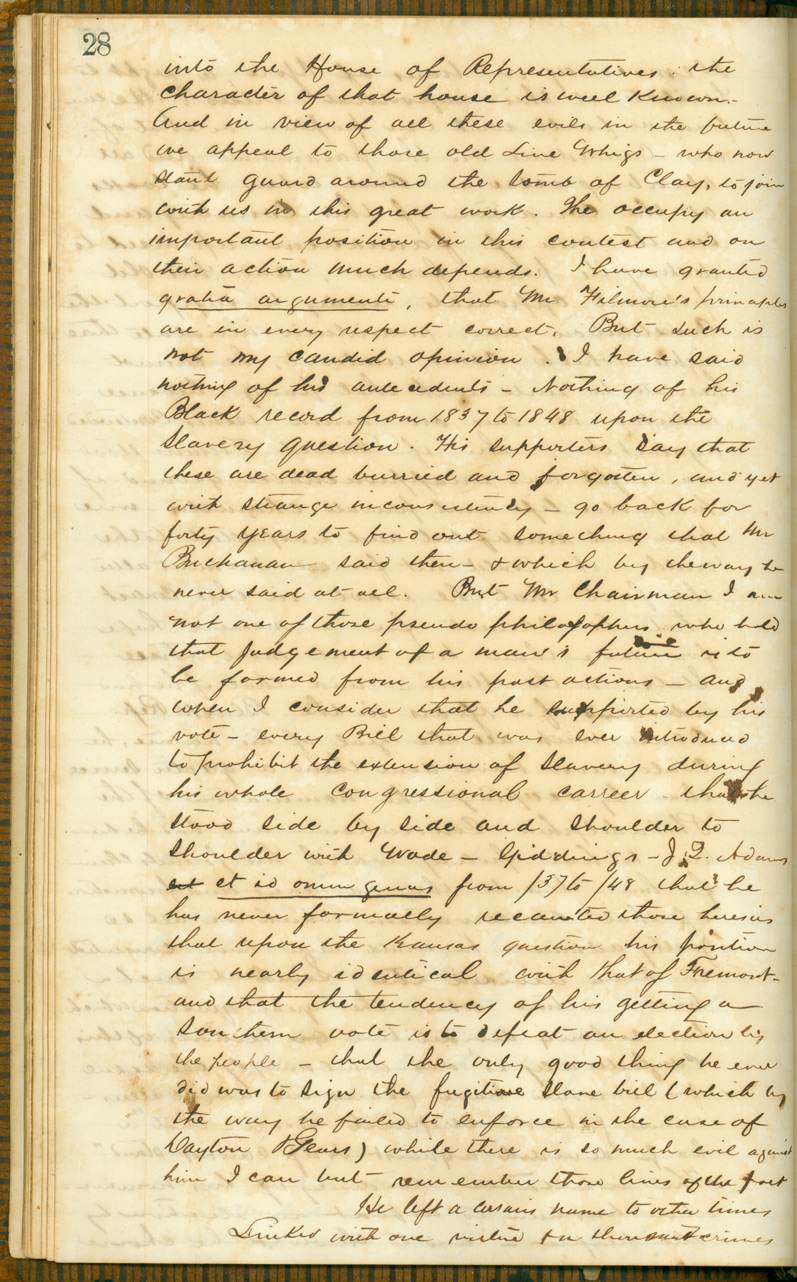 28
into the House of Representatives. the
character of that house is well known.
And in view of all these evils in the future
we appeal to those old Line Whigs - who now
stand guard around the tomb of Clay, to join
with us in this great work. The occupy an
important position in this contest and on
their action much depends. I have granted
gratia argumenti, that Mr Filmore's principles
are in every respect correct. But such is
not my candid opinion. I have said
nothing of his antecedents - Nothing of his
Black record from 1837 to 1848 upon the
Slavery question. His supporters say that
these are dead burried and forgotten, and yet
with strange inconsistency - go back for
forty years to find out something that Mr
Buchanan said then - & which by the way he
never said at all. But Mr Chairman I am
not one of those pseudo philosophers who hold
that judgement of a man's future is to
be formed from his past actions - and
when I consider that he supported by his
vote - every Bill that was ever introduced
to prohibit the extension of Slavery during
his whole congressional carreer that he
stood side by side and shoulder to
shoulder with Wade - Giddings - J. Q. Adams
et et id omne genus from /37 to /48 that he
has never formally recanted those heresies
that upon the Kansas question his position
is nearly identical with that of Fremont -
and that the tendency of his getting a
Southern vote is to defeat an election by
the people - that the only good thing he ever
did was to sign the fugitive slave bill (which by
the way he failed to enforce in the case of
&) while there is so much evil against
him I can but remember those lines of the poet
He left a corsairs name to other times
Linked with one virtue & a thousand crimes